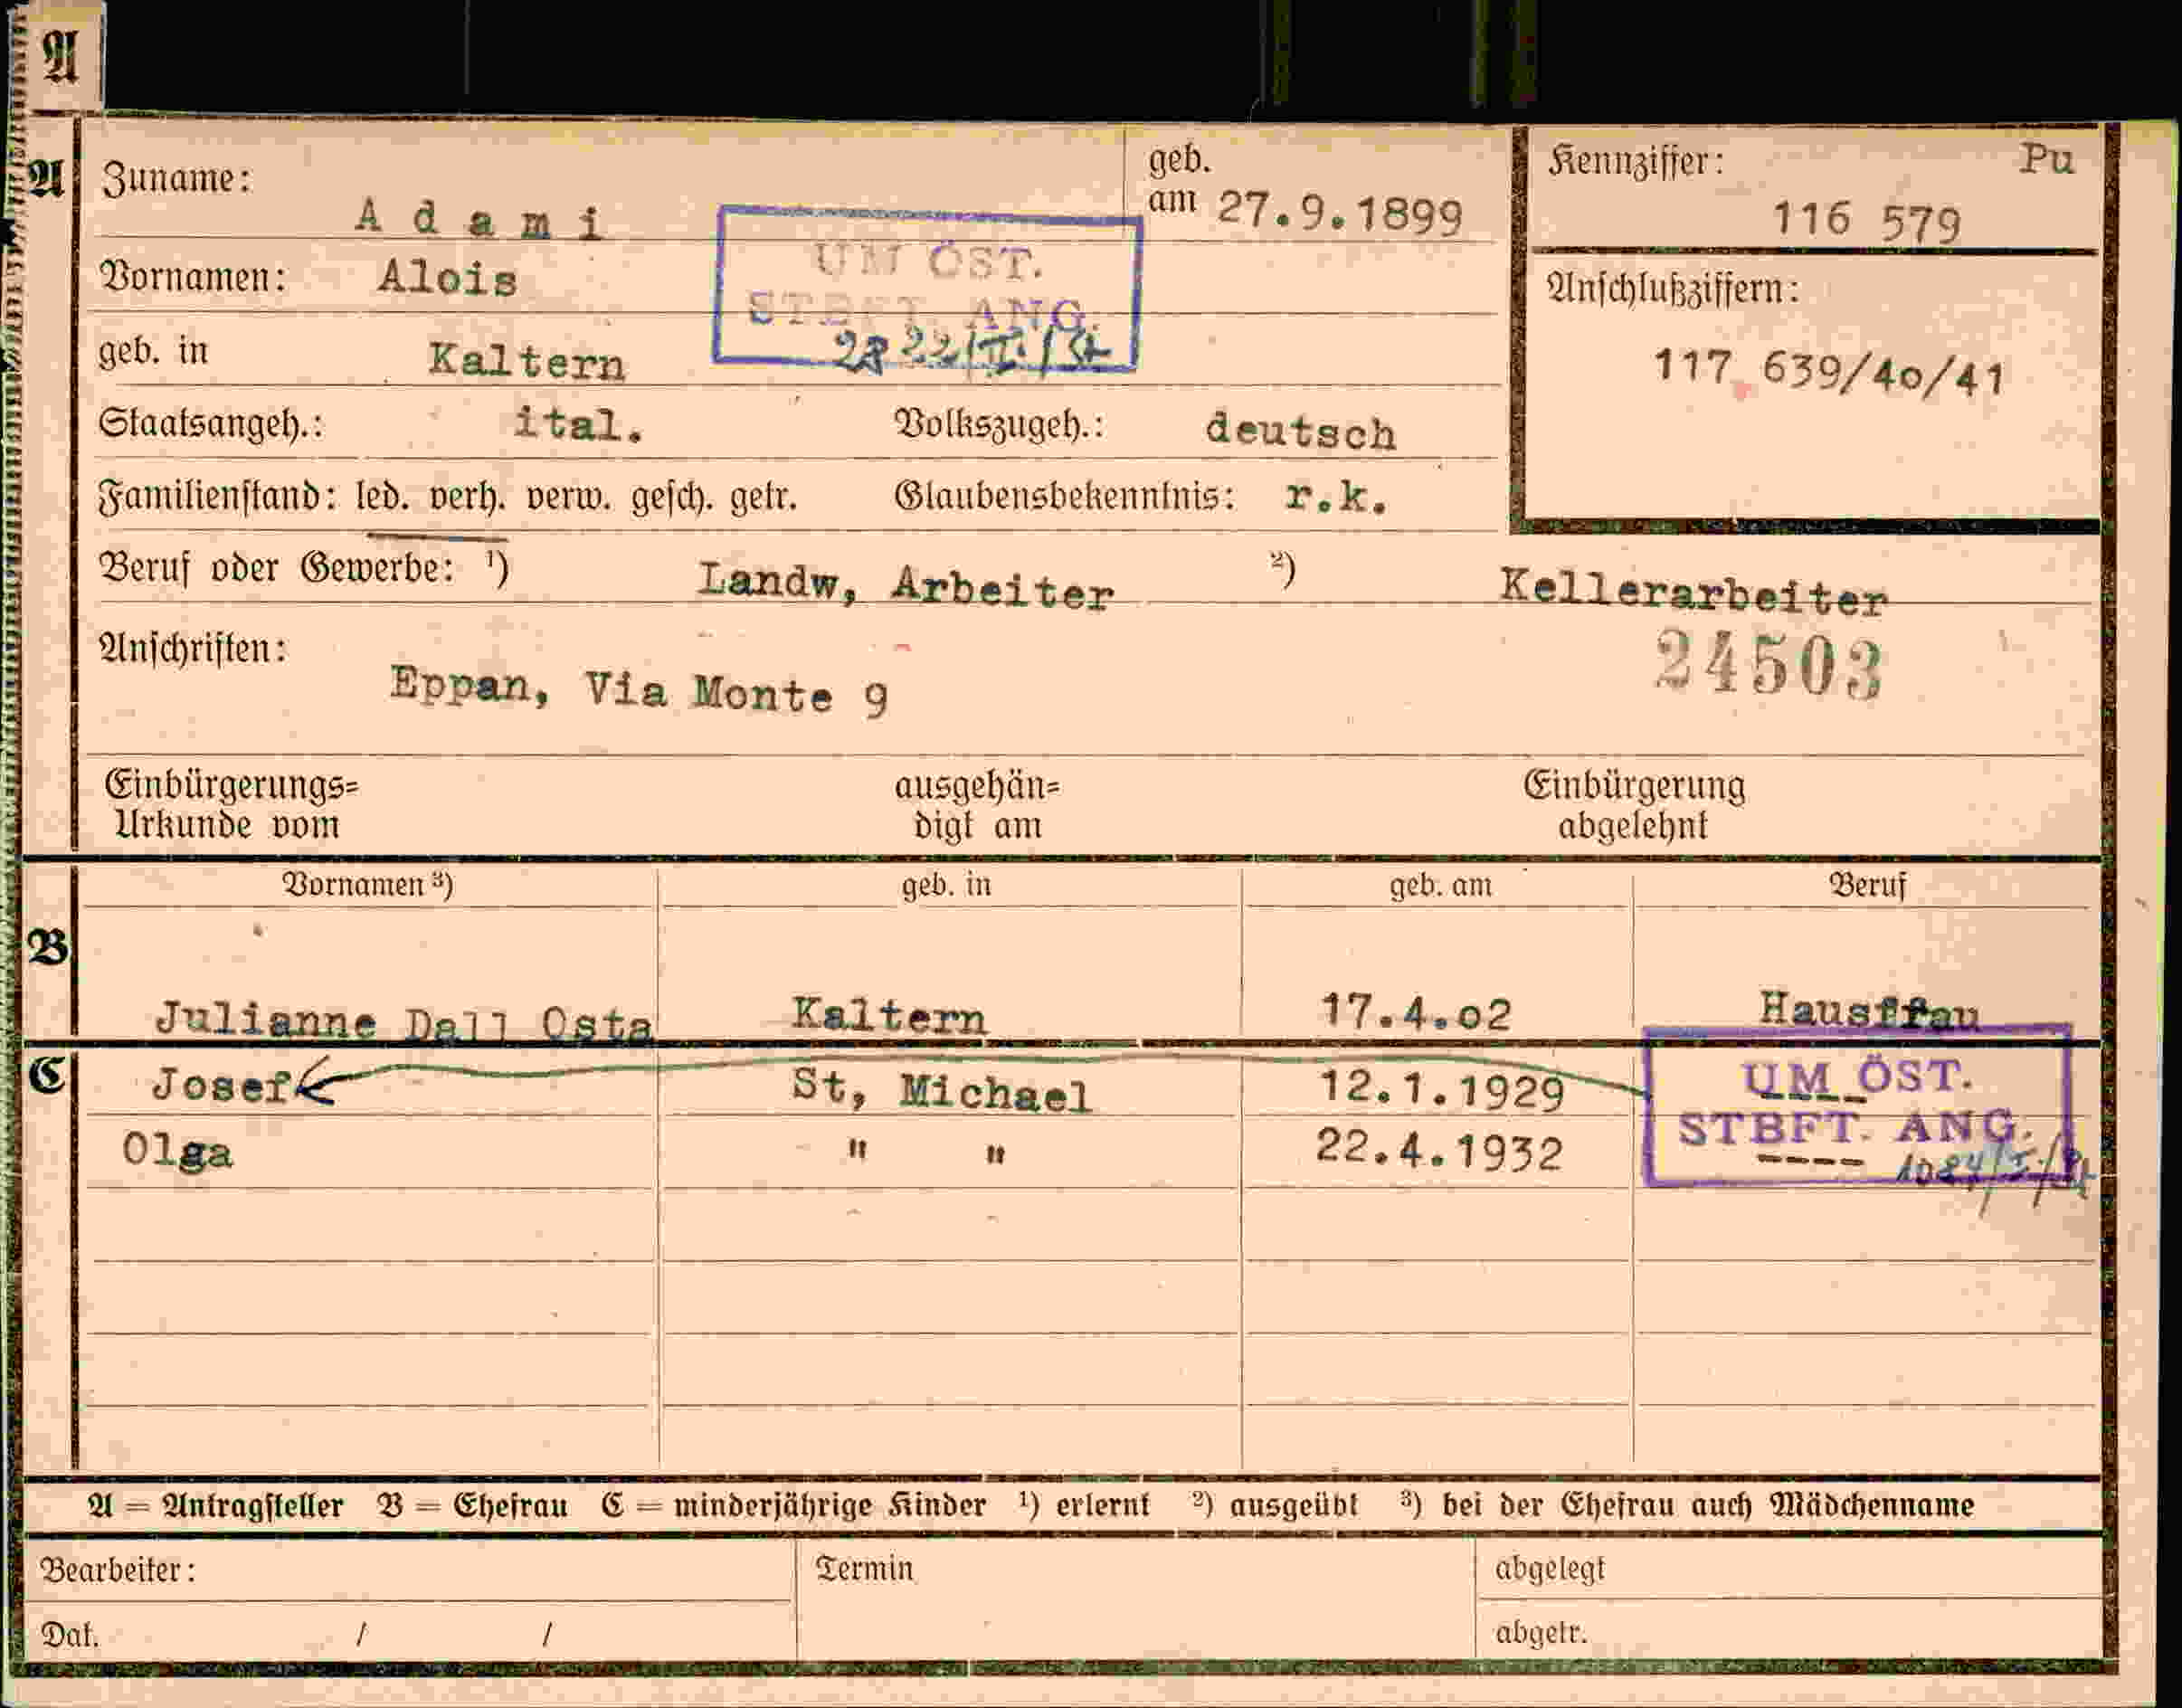 A
A
Zuname: A d a m i
geb. am 27.9.1899
Kennziffer: Pu
116 579
UM ÖST.
STBFT. ANG.
Vornamen: Alois
Anschlußziffern:
117 639/40/41
geb. in Kaltern
Staatsangeh.: ital. Volkszugeh.: deutsch
Familienstand: led. verh. verw. gesch. getr. Glaubensbekenntnis: r.k.
Beruf oder Gewerbe: ¹) Landw, Arbeiter ²) Kellerarbeiter
Anschriften:
24503
Eppan, Via Monte 9
Einbürgerungs= ausgehän= Einbürgerung
Urkunde vom digt am abgelehnt
Vornamen ³) geb. in geb. am Beruf
B
Julianne Dall Osta Kaltern 17.4.02 Hausffau
C
Josef St, Michael 12.1.1929 ----
Olga " " 22.4.1932 ----
UM ÖST.
STBFT. ANG.
A = Antragsteller B = Ehefrau C = minderjährige Kinder ¹) erlernt ²) ausgeübt ³) bei der Ehefrau auch Mädchenname
Bearbeiter: Termin abgelegt
Dat. / / abgetr.